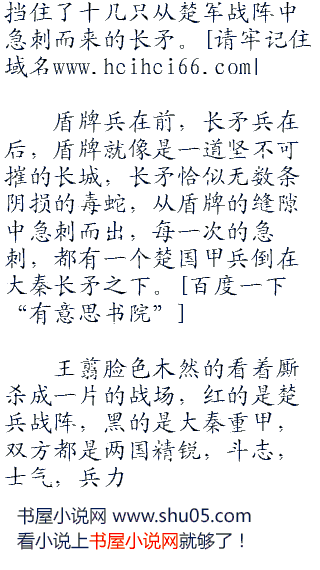 挡住了十几只从楚军战阵中
急刺而来的长矛。[请牢记住
域名www.hcihci66.com|
盾牌兵在前，长矛兵在
后，盾牌就像是一道坚不可
摧的长城，长矛恰似无数条
阴损的毒蛇，从盾牌的缝隙
中急刺而出，每一次的急
刺，都有一个楚国甲兵倒在
大秦长矛之下。[百度一下
“有意思书院”]
王翦脸色木然的看着厮
杀成一片的战场，红的是楚
兵战阵，黑的是大秦重甲，
双方都是两国精锐，斗志，
士气，兵力
书屋小说网 www.shu05.com
看小说上书屋小说网就够了！